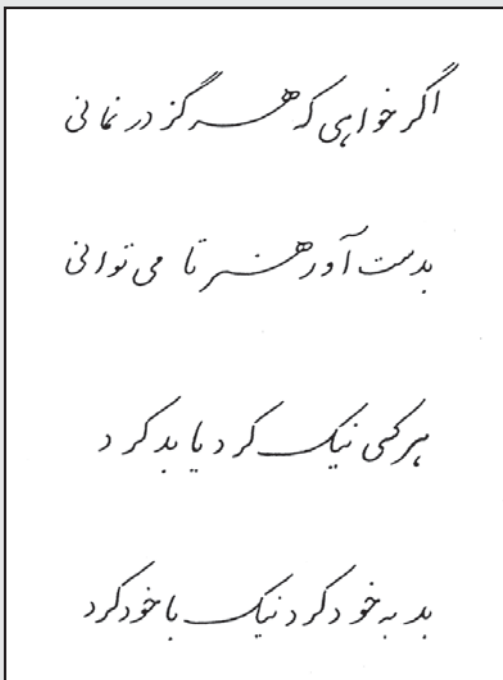 اگر خواهی که هرگز در نمانی
بدست آور هنر تا می توانی
هر کسی نیک کرد یا بد کرد
بد به خود کرد نیک با خود کرد